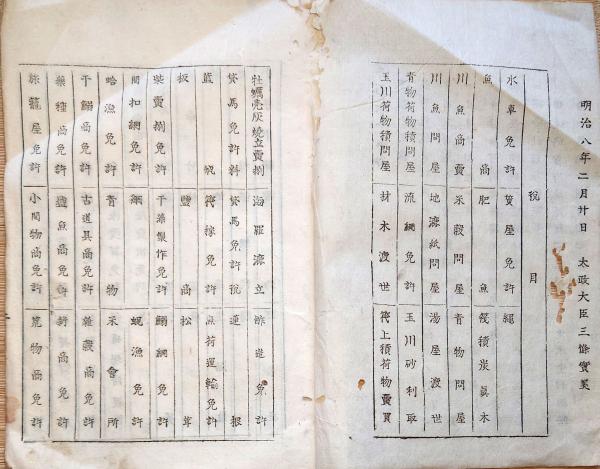 明治八年二月廿日　太政大臣三條實美
税目
水車免許　質屋免許　縄
魚商　肥　魚　積炭眞木
川魚商賣　米穀問屋　青物問屋
川魚問屋　地漉紙問屋　湯屋渡世
青物荷物積問屋　流網免許　玉川砂利取
玉川荷物積問屋　材木渡世　筏上積荷物賣買
牡蠣売灰焼立賣捌　海羅漉立　酢造免許
貸馬免許料　貸馬免許税　蓮根
藍瓶　筏稼免許　魚荷運輸免許
板　鹽商　松茸
柴賣捌免許　干海製作免許　鰯網免許
間扣網免許　網　蜆漁免許
蛤漁免許　青物　米會所
干鰯商免許　古道具商免許　雜穀商免許
藥種商免許　鹽魚商免許　商免許
旅籠屋免許　小間物商免許　荒物商免許